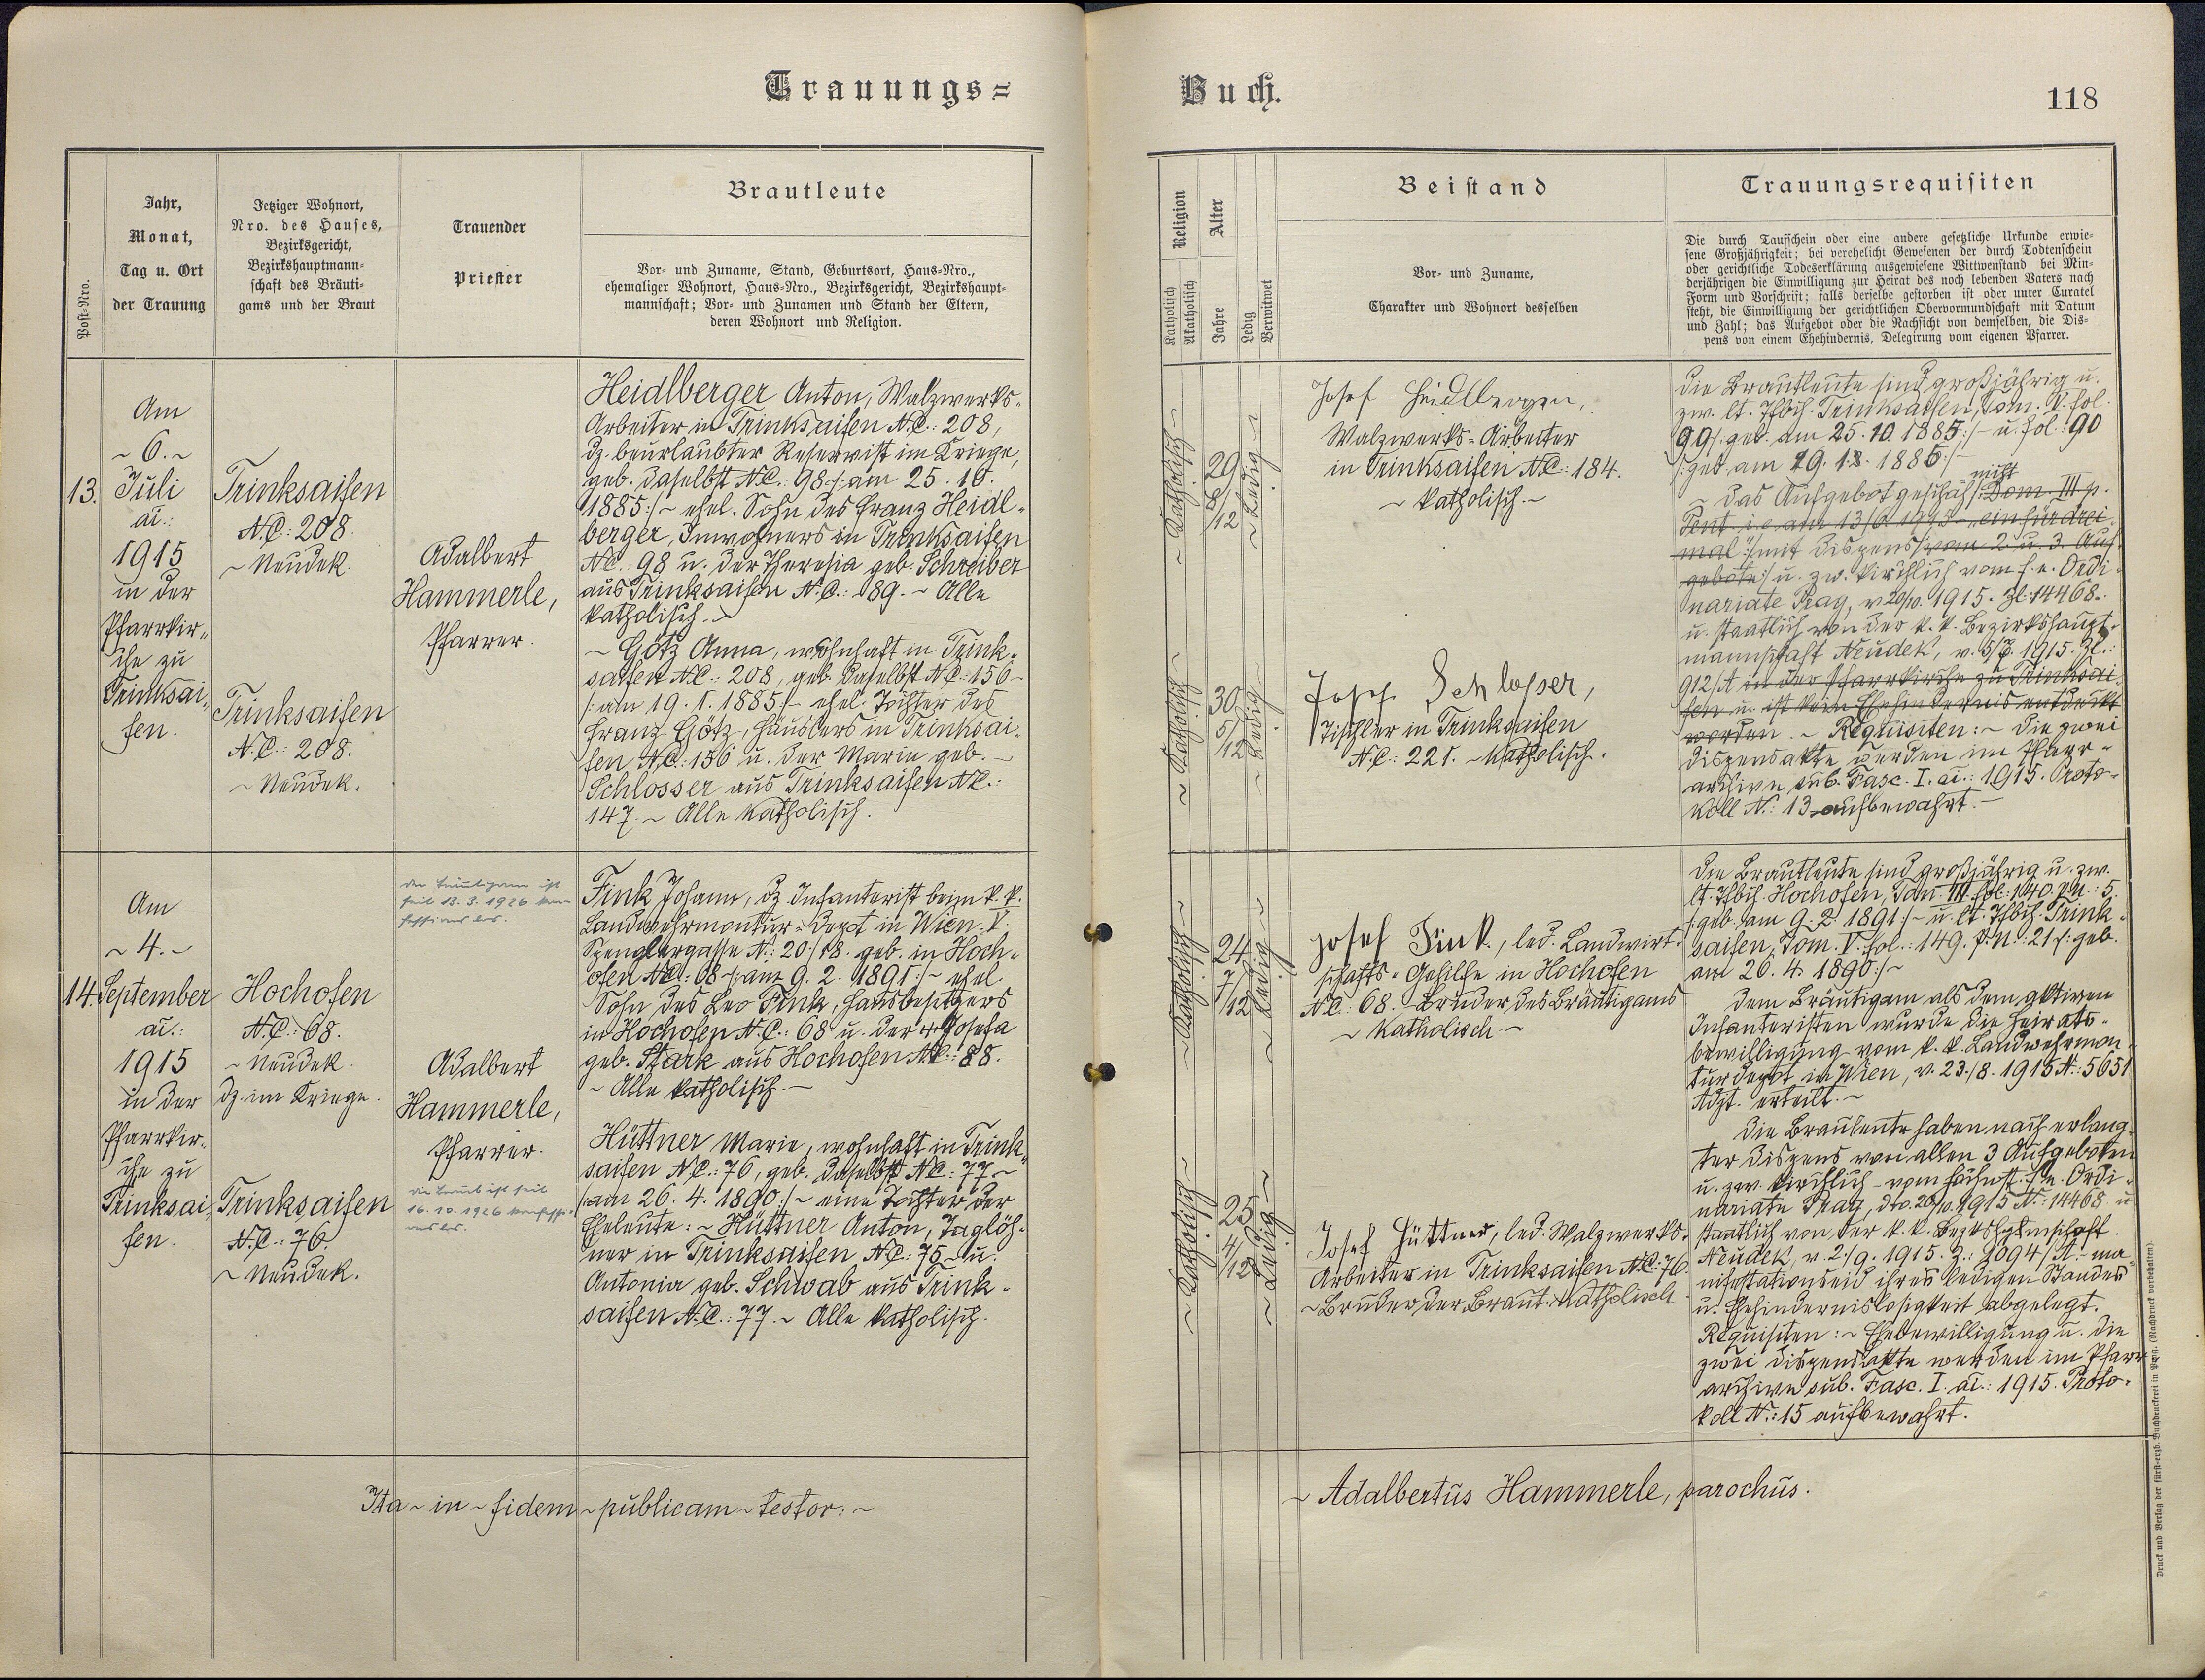 Trauungs=
Buch.
118
Post=Nro.
Jahr,
Monat,
Tag u. Ort
der Trauung
Jetziger Wohnort,
Nro. des Hauses,
Bezirksgericht,
Bezirkshauptmann=
schaft des Bräuti=
gams und der Braut
Trauender
Priester
Brautleute
Vor= und Zuname, Stand, Geburtsort, Haus=Nro.,
ehemaliger Wohnort, Haus=Nro., Bezirksgericht, Bezirkshaupt=
mannschaft; Vor= und Zunamen und Stand der Eltern,
deren Wohnort und Religion.
Religion
Katholisch
Akatholisch
Alter
Jahre
Ledig
Verwittwet
Beistand
Vor= und Zuname,
Charakter und Wohnort desselben
Trauungsrequisiten
Die durch Taufschein oder eine andere gesetzliche Urkunde erwie=
sene Großjährigkeit; bei verehelicht Gewesenen der durch Todtenschein
oder gerichtliche Todeserklärung ausgewiesene Wittwenstand bei Min=
derjährigen die Einwilligung zur Heirat des noch lebenden Vaters nach
Form und Vorschrift; falls derselbe gestorben ist oder unter Curatel
steht, die Einwilligung der gerichtlichen Obervormundschaft mit Datum
und Zahl; das Aufgebot oder die Nachsicht von demselben, die Dis=
pens von einem Ehehindernis, Delegirung vom eigenen Pfarrer.
13.
Am
~ 6. ~
Juli
ai.:
1915
in der
Pfarrkir=
che zu
Trinksai=
fen.
Trinksaifen
N.C.: 208.
~ Neudek.
Trinksaifen
N.C.: 208.
~ Neudek.
Adalbert
Hammerle,
Pfarrer.
Heidlberger Anton, Walzwerks=
Arbeiter in Trinksaifen N.C.: 208,
dz. beurlaubter Reservist im Kriege,
geb. daselbst N.C.: 98 /: am 25. 10.
1885 :/ ~ ehel. Sohn des Franz Heidl=
berger, Inwohners in Trinksaifen
N.C.: 98 u. der Theresia geb. Schreiber
aus Trinksaifen N.C.: 189. ~ Alle
katholisch. ~
~ Götz Anna, wohnhaft in Trink=
saifen N.C.: 208, geb. daselbst N.C.: 156 ~
/: am 19. 1. 1885 :/ ~ ehel. Tochter des
Franz Götz, Häuslers in Trinksai=
fen N.C.: 156 u. der Marie geb. ~
Schlosser aus Trinksaifen N.C.:
147. ~ Alle katholisch.
~ Katholisch ~
29
8/12
~ Ledig ~
~ Katholisch ~
30
5/12
~ Ledig ~
Josef Heidlberger,
Walzwerks=Arbeiter
in Trinksaifen N.C.: 184.
~ katholisch. ~
Josef Schlosser,
Tischler in Trinksaifen
N.C.: 221. ~ Katholisch.
Die Brautleute sind großjährig u.
zw. lt. Tfbch. Trinksaifen, Tom. V. fol.
99 /: geb. am 25. 10. 1885 :/ ~ u. fol.: 90
/: geb. am 19. 1. 1885 :/ ~
nicht
~ Das Aufgebot geschah /: Dom. III p.
Pent. i. e. am 13/6 1915 ~ „ein für drei=
mal" :/ mit Dispens /: vom 2. u. 3. Auf=
gebote :/ u. zw. kirchlich vom f. e. Ordi=
nariate Prag, v. 20/10. 1915. Zl. 14468.
u. staatlich von der k. k. Bezirkshaupt=
mannschaft Neudek, v. 5/7. 1915. Zl.:
912/A in der Pfarrkirche zu Trinksai=
fen u. ist kein Ehehindernis entdeckt
worden. ~ Requisiten: ~ Die zwei
Dispensakte werden im Pfarr=
archive sub. Fasc. I. ai.: 1915. Proto=
koll N.: 13 aufbewahrt. ~
14.
Am
~ 4. ~
September
ai.:
1915
in der
Pfarrkir=
che zu
Trinksai=
fen.
Hochofen
N.C.: 68.
~ Neudek.
dz. im Kriege.
Trinksaifen
N.C.: 76.
~ Neudek.
der Bräutigam ist
seit 13. 3. 1926 kon=
fessionslos.
Adalbert
Hammerle,
Pfarrer.
die Braut ist seit
16. 10. 1926 konfessi=
onslos.
Fink Johann, dz. Infanterist beim k. k.
Landwehrmontur=Depot in Wien: V.
Spenglergasse N.: 20/18. geb. in Hoch=
ofen N.C.: 68 /: am 9. 2. 1891 :/ ~ ehel.
Sohn des Leo Fink, Hausbesitzers
in Hochofen N.C.: 68 u. der + Josefa
geb. Stark aus Hochofen N.C.: 88.
~ Alle katholisch. ~
Hüttner Marie, wohnhaft in Trink=
saifen N.C.: 76, geb. daselbst N.C.: 77 ~
/: am 26. 4. 1890 :/ ~ eine Tochter der
Eheleute: ~ Hüttner Anton, Taglöh=
ner in Trinksaifen N.C.: 75 u.
Antonia geb. Schwab aus Trink=
saifen N.C.: 77. ~ Alle katholisch.
~ Katholisch ~
24
7/12
~ Ledig ~
~ Katholisch ~
25
4/12
~ Ledig ~
Josef Fink, led. Landwirt=
schafts=Gehilfe in Hochofen
N.C.: 68. Bruder des Bräutigams
~ Katholisch ~
Josef Hüttner, led. Walzwerks=
Arbeiter in Trinksaifen N.C.: 76
~ Bruder der Braut. Katholisch
Die Brautleute sind großjährig u. zw.
lt. Tfbch. Hochofen, Tom. III. fol.: 140. P.N.: 5.
/: geb. am 9. 2. 1891 :/ ~ u. lt. Tfbch. Trink=
saifen, Tom. V. fol.: 149. P.N.: 21 /: geb.
am 26. 4. 1890 :/ ~
Dem Bräutigam als dem aktiven
Infanteristen wurde die Heirats=
bewilligung vom k. k. Landwehrmon=
turdepot in Wien, v. 23./8. 1915 N.: 5651
Adjt. erteilt. ~
Die Brautleute haben nach erlang=
ter Dispens von allen 3 Aufgeboten
u. zw. kirchlich vom f. e. Ordi=
nariate Prag, dto. 20/10. 1915 N.: 14468 u.
staatlich von der k. k.
Neudek, v. 2./9. 1915. Z.: 1094/A. ~ ma=
nifestationseid ihres ledigen Standes
u. Ehehindernislosigkeit abgelegt.
Requisiten: ~ Ehebewilligung u. die
zwei Dispensakte werden im Pfarr=
archive sub. Fasc. I. ai.: 1915. Proto=
koll N.: 15 aufbewahrt.
Ita ~ in ~ fidem ~ publicam ~ testor: ~
~ Adalbertus Hammerle, parochus.
Druck und Verlag der fürst=erzb. Buchdruckerei in Prag. (Nachdruck vorbehalten).